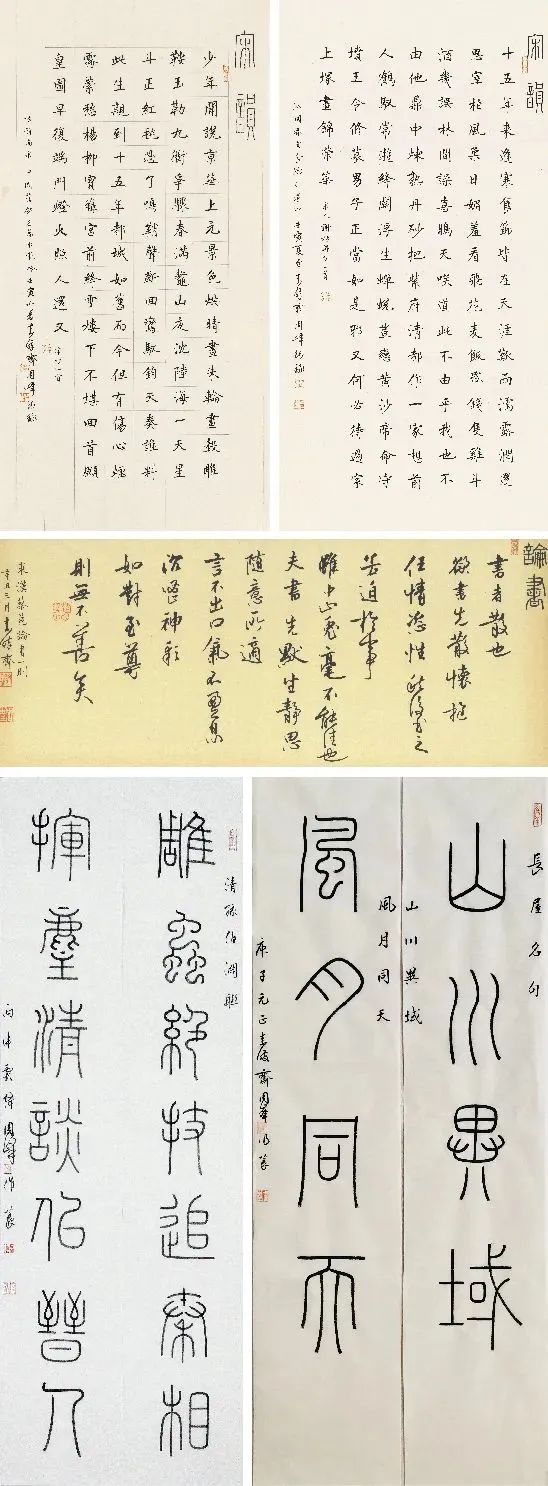 宋韻
少年聞說京華上元景色烘晴晝朱輪畫轂雕
鞍玉勒九衢爭驟春滿鰲山夜沈陸海一天星
斗正紅毬過了鳴鞘聲斷回鸞馭鈞天奏誰料
此生親到十五年都城如舊而今但有傷心煙
霧縈愁楊柳寶籙宮前絳霄樓下不堪回首願
皇圖早復端門燈火照人還又
宋韻
十五年來逢寒食節皆在天涯歎雨濡露潤還
思宰柏風柔日媚羞看飛花麦飯紙錢隻雞斗
酒幾誤林間噪喜鴉天咲道此不由乎我也不
由他鼎中煉熟丹砂把紫府清都作一家想前
人鶴馭常遊絳闕浮生蟬蛻豈戀黃沙帝命守
墳王令修墓男子正當如是邪又何必待過家
上塚晝錦榮華
論書
書者散也
欲書先散懷抱
任情恣性然後書之
若迫於事
雖中山兔毫不能佳也
夫書先默坐靜思
隨意所適
言不出口氣不盈息
沉密神彩
如對至尊
則無不善矣
東漢蔡邕論書一則
辛丑三月
清孫伯淵聯
雕蟲絕技追秦相
揮麈清談似晉人
丙申 周峰
長屋名句
山川異域
山川異域
風月同天
風月同天
庚子元正 齋周峰